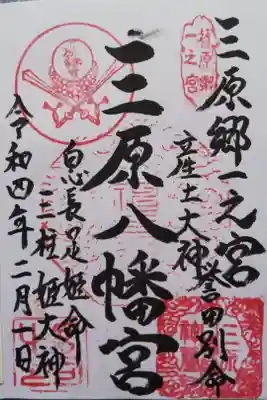 三原郷一之宮
産土大神
誉田別命
三原八幡宮
息長足姫命
三柱姫大神
令和四年二月十日
三原郷
一之宮